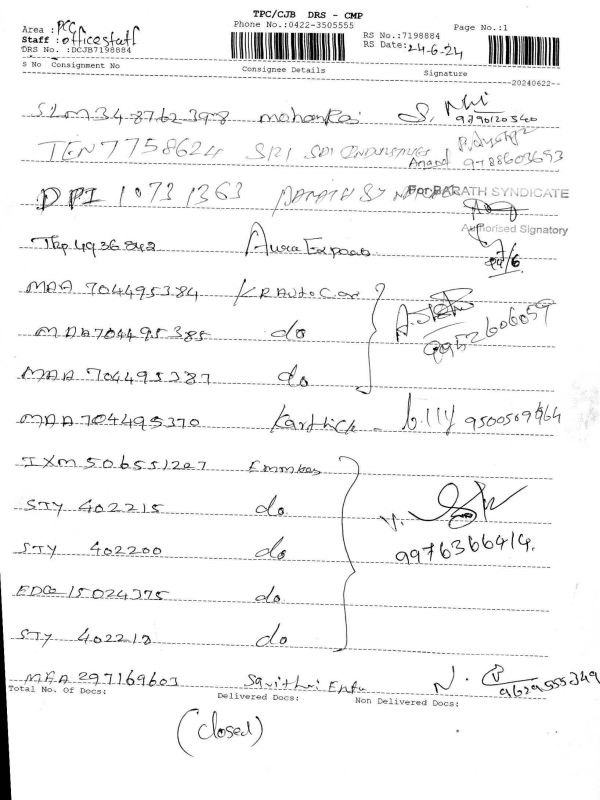 TPC/CJB DRS - CMP
Area : PCC Phone No.:0422-3505555 RS No.:7198884 Page No.:1
Staff : officestaff RS Date: 24-6-24
DRS No. :DCJB7198884
S No Consignment No Consignee Details Signature
--20240622--
SLM 34-8762-398 mohanRaj 9790120540
TEN 7758624 SRI SAI INDUSTRIES Anand 9788603693
PPI 10731363 For BARATH SYNDICATE
Authorised Signatory
Tkp 4936842 Aura Expoas 24/6
MAA 704495384 KR Auto Car
MAA 704495385 do 9952606059
MAA 704495387 do
MAA 704495370 Karthick - 9500509664
IXM 506551207 Emmbes
STY 402215 do
STY 402200 do 9976366414.
EDC 15024375 do
STY 402218 do
MAA 297169603 Savithri Entp N. 9629555349
Total No. Of Docs: Delivered Docs: Non Delivered Docs:
(closed)